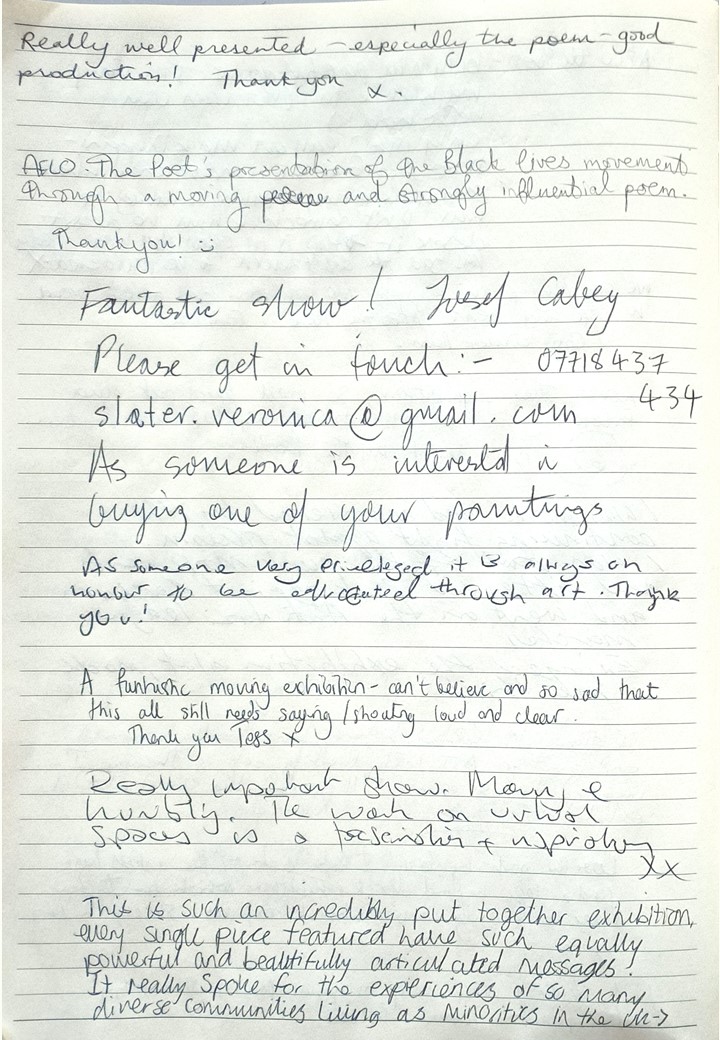 Really well presented - especially the poem - good
production! Thank you x.
AFLO. The Poet's presentation of the Black lives movement
through a moving and strongly influential poem.
Thankyou! :)
Fantastic show! Josef Cabey
Please get in touch:- 07718437
434
slater.veronica@gmail.com
As someone is interestd in
buying one of your paintings
As someone very privileged it is always an
honour to be educated through art. Thank
you!
A funtastic moving exhibition - can't believe and so sad that
this all still needs saying / shouting loud and clear.
Thank you Tess x
Really important show. Moving &
humbly. The work on virtual
spaces is a + 
xx
This is such an incredibly put together exhibition,
every single piece featured have such equally
powerful and beautifully articulated messages!
It really spoke for the experiences of so many
diverse communities living as minorities in the UK->